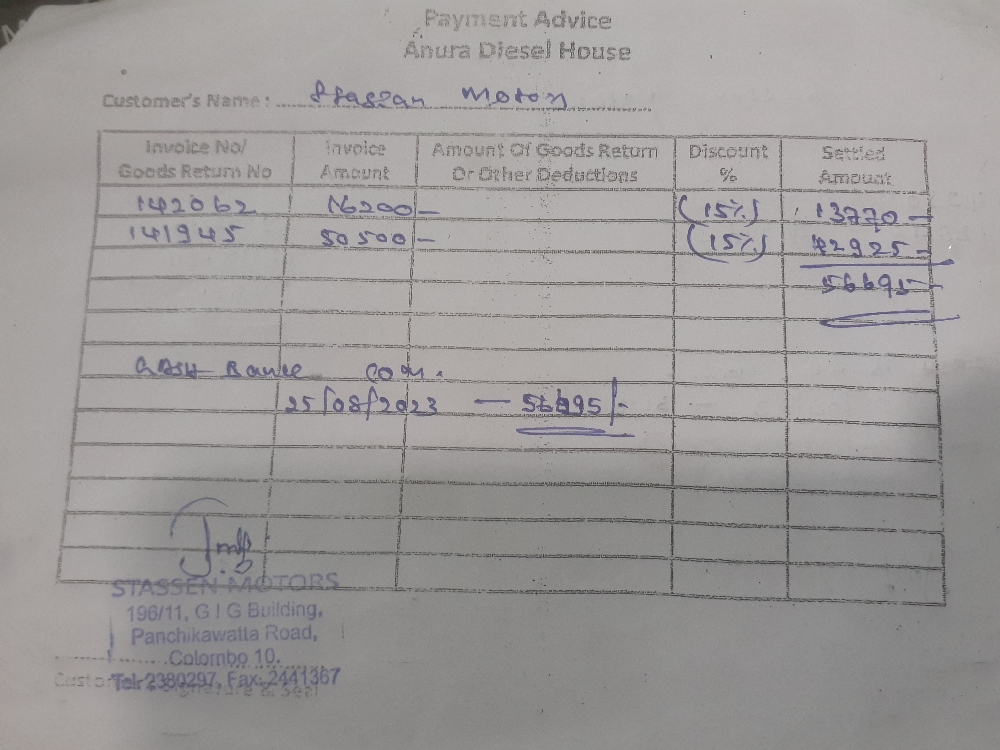 Payment Advice
Anura Diesel House
Customer's Name : Stassan Motors
Invoice No/ Goods Return No Invoice Amount Amount Of Goods Return Or Other Deductions Discount % Settled Amount
142062 16200/- (15%) 13770/-
141945 50500/- (15%) 42925/-
56695/-
25/08/2023 — 56695/-
STASSEN MOTORS
196/11, G I G Building,
Panchikawatta Road,
Colombo 10.
Tel: 2380297, Fax: 2441367